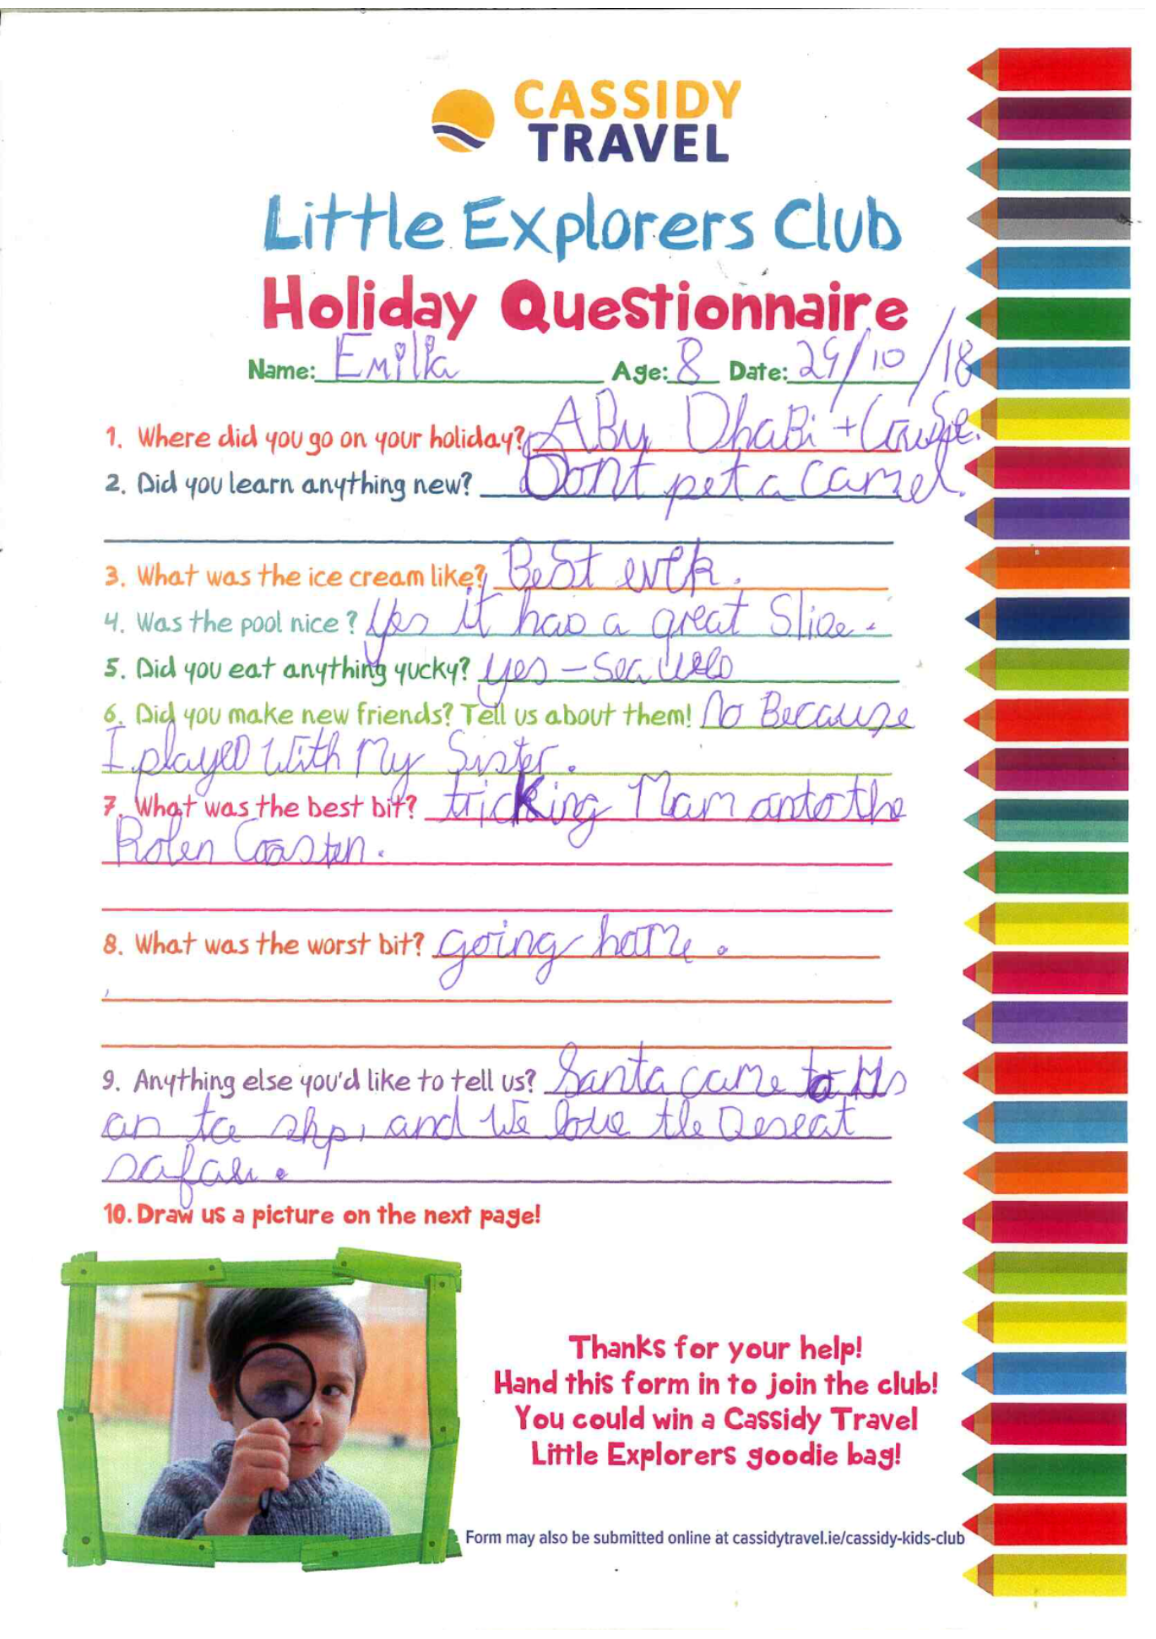 CASSIDY
TRAVEL
Little Explorers Club
Holiday Questionnaire
Name: Emilia Age: 8 Date: 29/10/18
1. Where did you go on your holiday? ABu DhaBi + Cruise.
2. Did you learn anything new? Dont pet a camel.
3. What was the ice cream like? Best ever.
4. Was the pool nice? Yes it has a great Slide.
5. Did you eat anything yucky? yes - Sea weed
6. Did you make new friends? Tell us about them! No Because
I played With My Sister.
7. What was the best bit? tricking Mam onto the
Roler Coaster.
8. What was the worst bit? going home.
9. Anything else you'd like to tell us? Santa came to Us
on the ship, and We love the Desert
safari.
10. Draw us a picture on the next page!
Thanks for your help!
Hand this form in to join the club!
You could win a Cassidy Travel
Little Explorers goodie bag!
Form may also be submitted online at cassidytravel.ie/cassidy-kids-club